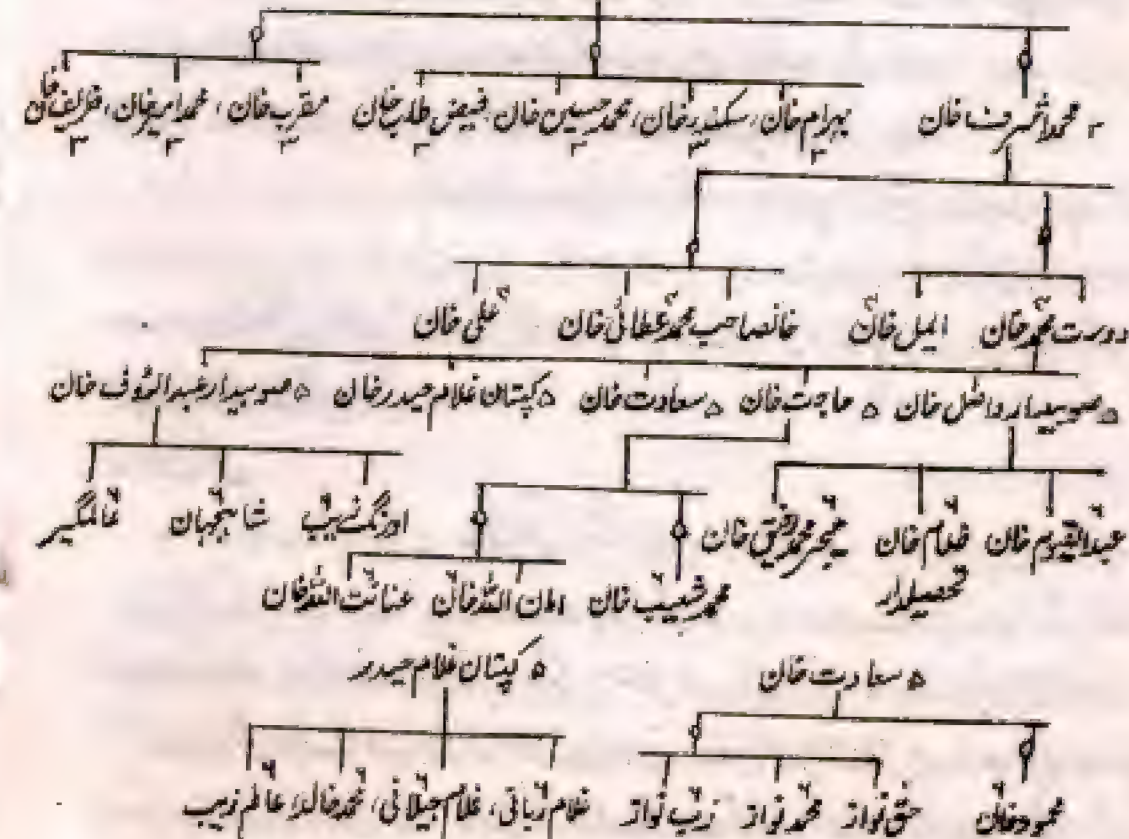 ۳ محمد اشرف خان بہرام خان، سکندر خان، محمد حسین خان، فیض طلب خان مقرب خان، محمد امیر خان، ظریف خان
۳ ۳ ۳ ۳ ۳ ۳ ۳
دوست محمد خان ایمل خان خانصاحب محمد عطائی خان علی خان
۵ صوبیدار واصل خان ۵ حاجت خان ۵ سعادت خان ۵ کپتان غلام حیدر خان ۵ صوبیدار عبدالرؤف خان
عبدالقیوم خان غلام خان میجر محمد رفیق خان اورنگ زیب شاہجہان عالمگیر
تحصیلدار
محمد شعیب خان امان اللہ خان عنائت اللہ خان
۵ سعادت خان ۵ کپتان غلام حیدر
محمود خان حق نواز محمد نواز زیب نواز غلام ربانی، غلام جیلانی، محمد خالد، عالم زیب